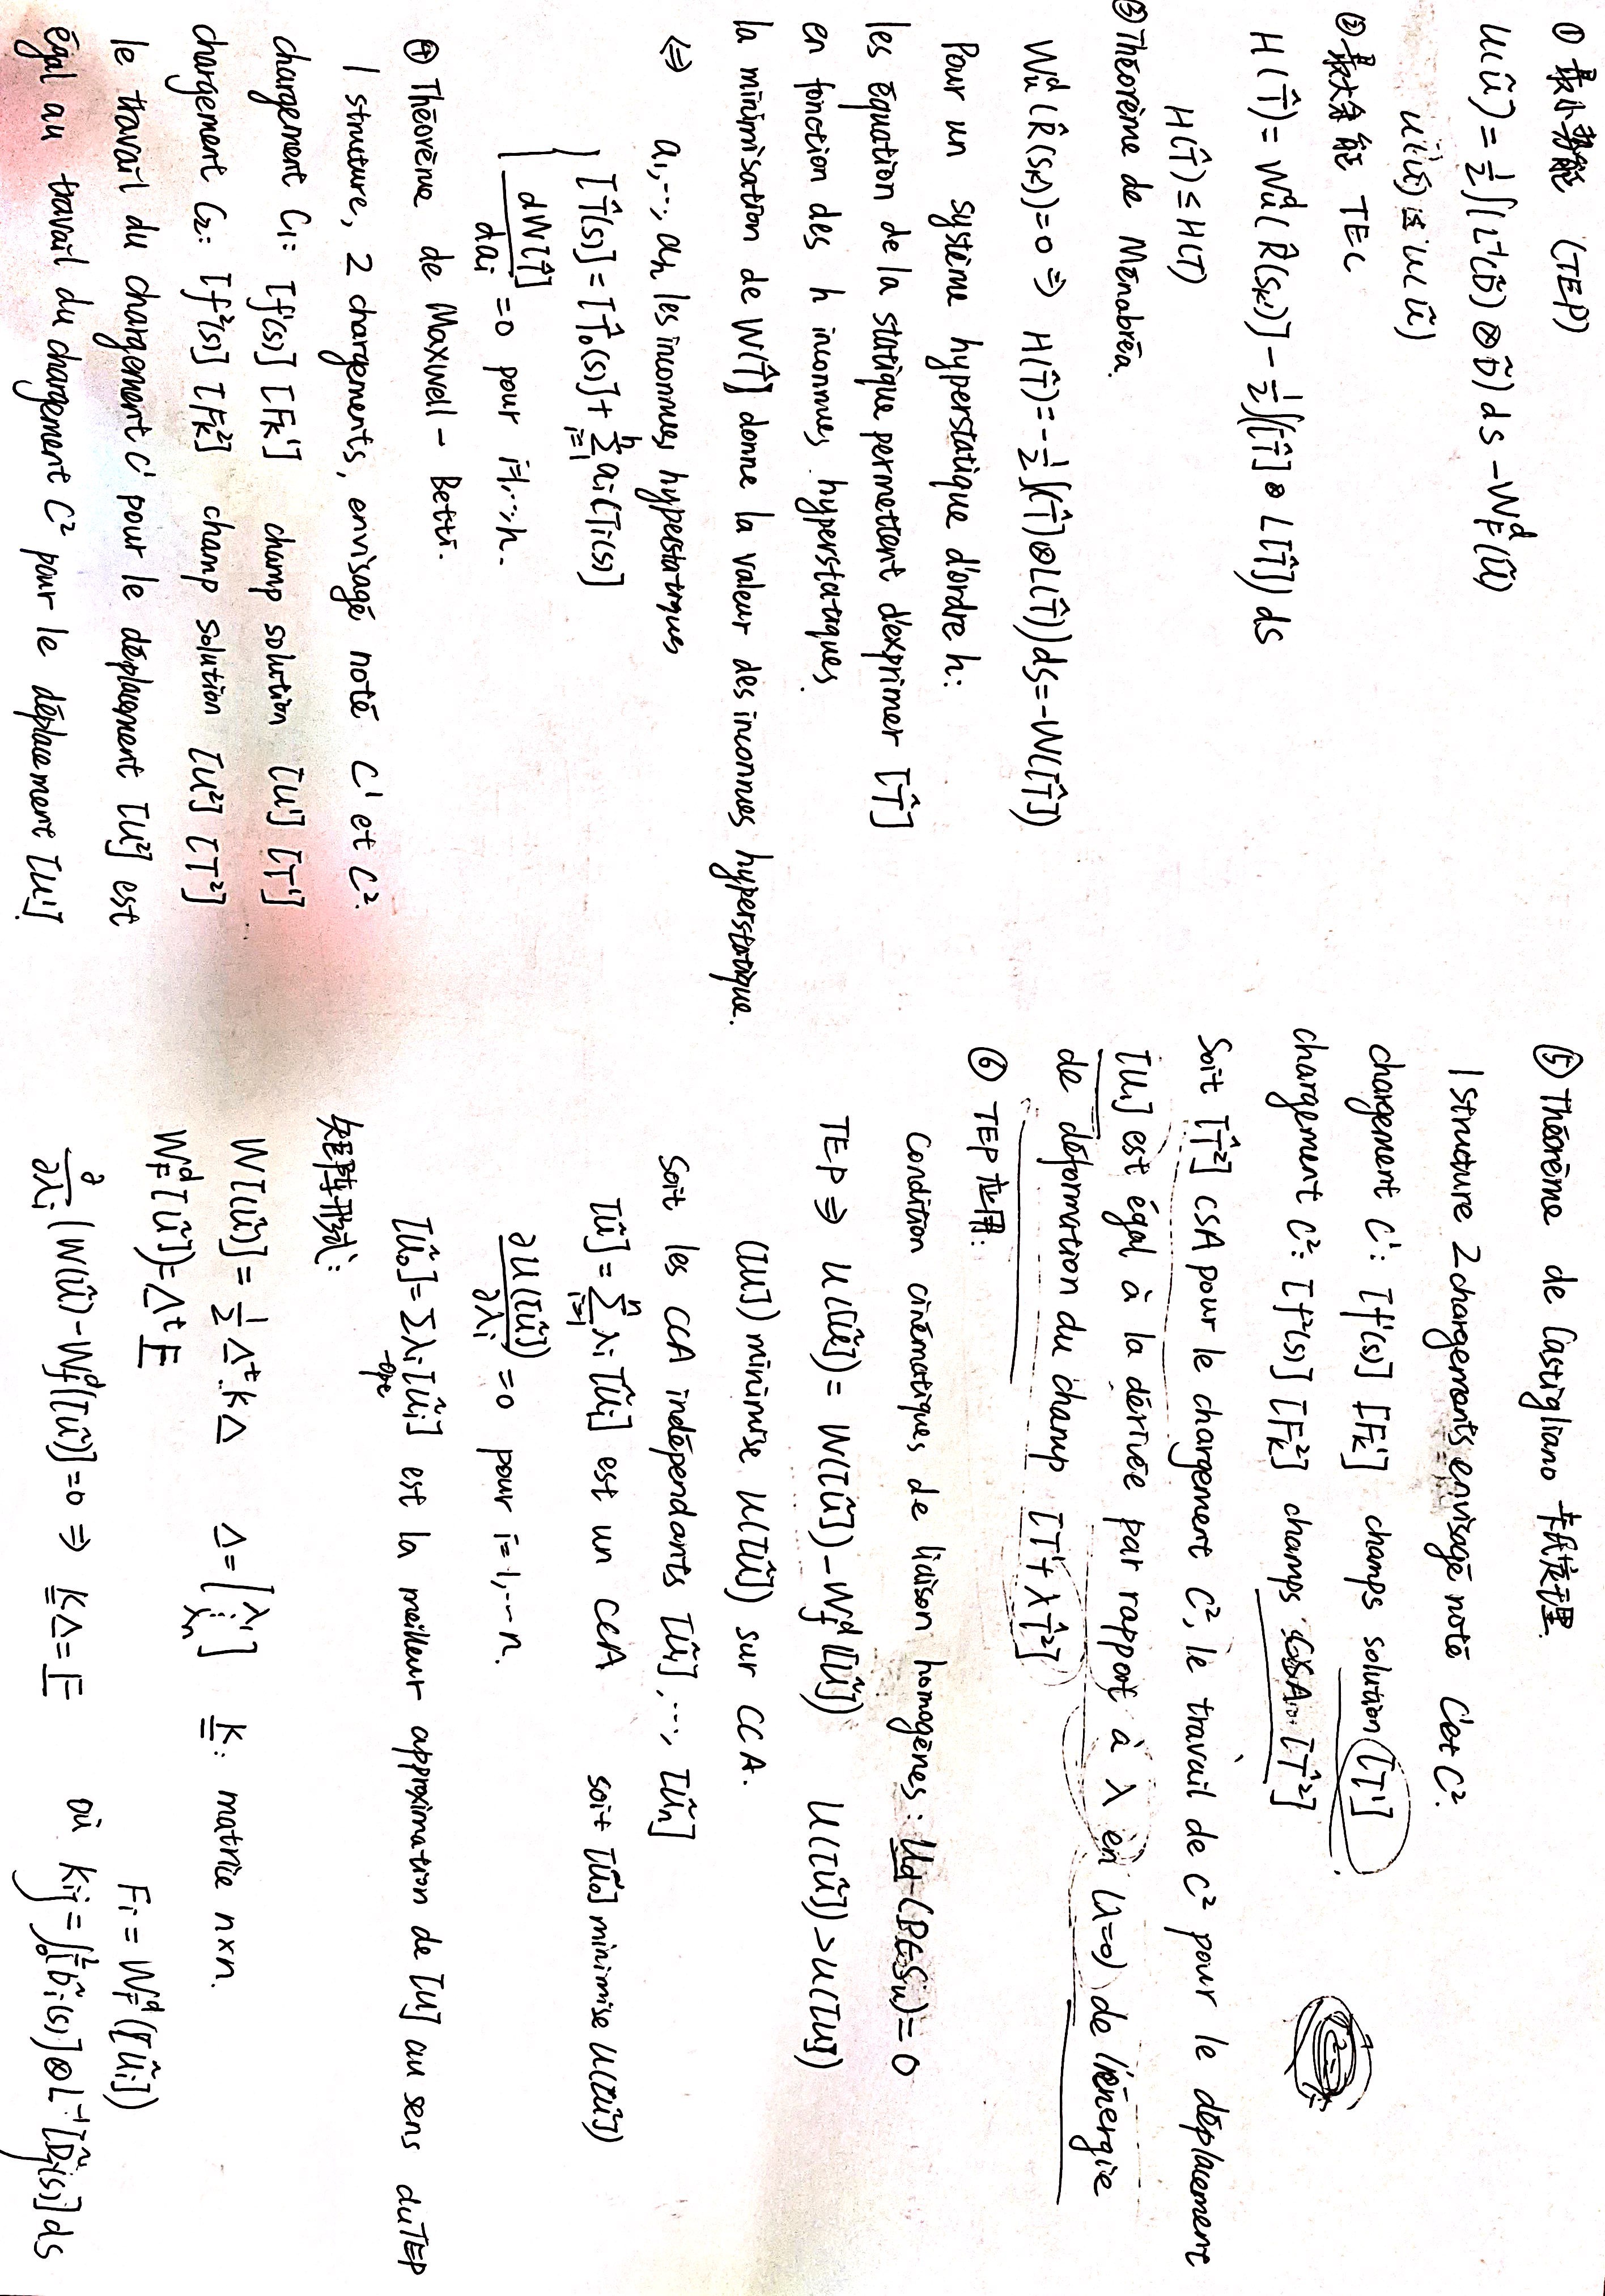 ① 最小势能 (TEP)
U(ũ) = 1/2 ∫(L⁻¹(D̃) ⊗ D̃) ds - W_F^d(ũ)
U(ũ) ≤ U(ũ)
② 最大余能 TEC
H(T̂) = W_u^d(R̂(s_k)] - 1/2 ∫([T̂] ⊗ L[T̂]) ds
H(T̂) ≤ H(T)
③ Théorème de Ménabréa.
W_u^d(R̂(s_k)) = 0 ⇒ H(T̂) = -1/2 ∫((T̂) ⊗ L(T̂)) ds = -W([T̂])
Pour un système hyperstatique d'ordre h:
les équation de la statique permettent d'exprimer [T̂]
en fonction des h inconnues hyperstatiques.
la minimisation de W(T̂] donne la valeur des inconnues hyperstatique.
⇔ a₁, ..., a_h les inconnues hyperstatiques
[T̂(s)] = [T̂₀(s)] + Σ_{i=1}^h a_i [T_i(s)]
dW[T̂] / da_i = 0 pour i=1,...,h.
④ Théorème de Maxwell - Betti.
1 structure, 2 chargements, envisagé noté C¹ et C².
chargement C₁: [f¹(s)] [F_k¹] champ solution [U¹] [T¹]
chargement C₂: [f²(s)] [F_k²] champ solution [U²] [T²]
le travail du chargement C¹ pour le déplacement [U²] est
égal au travail du chargement C² pour le déplacement [U¹].
⑤ Théorème de Castigliano 卡氏定理.
1 structure 2 chargements envisagé noté C¹ et C².
chargement C¹: [f¹(s)] [F_k¹] champs solution [T¹]
chargement C²: [f²(s)] [F_k²] champs CSA [T̂²]
Soit [T̂²] CSA pour le chargement C², le travail de C² pour le déplacement
[U₁] est égal à la dérivée par rapport à λ en (λ=0) de l'énergie
de déformation du champ [T¹ + λT̂²]
⑥ TEP 应用:
condition cinématiques de liaison homogènes: U_d (P∈S_u) = 0
TEP ⇒ U([ũ]) = W([ũ]) - W_f^d([ũ]) U([ũ]) > U([u])
([U]) minimise U([ũ]) sur CCA.
Soit les CCA indépendants [ũ₁], ..., [ũ_n]
[ũ] = Σ_{i=1}^n λ_i [ũ_i] est un CCA soit [ũ₀] minimise U([ũ])
∂U([ũ]) / ∂λ_i = 0 pour i=1,...n.
[ũ₀] = Σλ_i^{opt} [ũ_i] est la meilleur approximation de [U] au sens du TEP
矩阵形式:
W[(ũ)] = 1/2 Λ^t K Λ Λ = [λ₁ ⋮ λ_n] K: matrice n×n.
W_F^d [ũ]) = Λ^t F
∂/∂λ_i (W(ũ) - W_f^d([ũ)]) = 0 ⇒ KΛ = F où K_ij = ∫₀ [D̃_i(s)] ⊗ L⁻¹ [D̃_j(s)] ds
F_i = W_F^d([ũ_i])